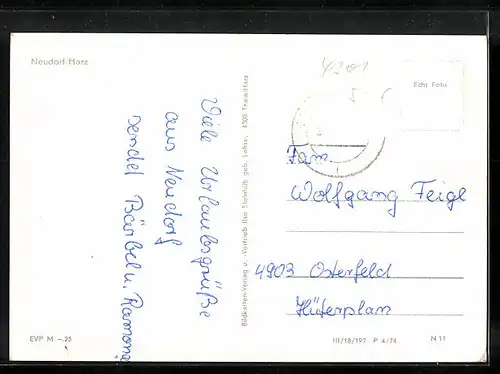 Neudorf Harz
Viele Urlaubsgrüße
aus Neudorf
sendet Bärbel u. Ramona
EVP M –.25
Bildkarten-Verlag u. -Vertrieb Ilse Steinhüb geb. Lohse, 4308 Thale/Harz
4201
Echt Foto
Fam
Wolfgang Feigl
4903 Osterfeld
Hüterplan
III/18/197 P 4/74 N 11